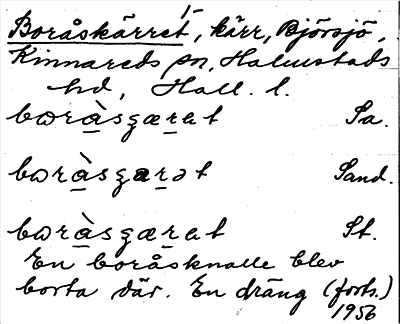 Boråskärret, kärr, Björsjö,
Kinnareds sn, Halmstads
hd, Hall. l.
bωràsʒærat Sa.
bωràsʒarət Sand.
bωràsʒærat St.
En boråsknalle blev
borta där. En dräng (forts.)
1956